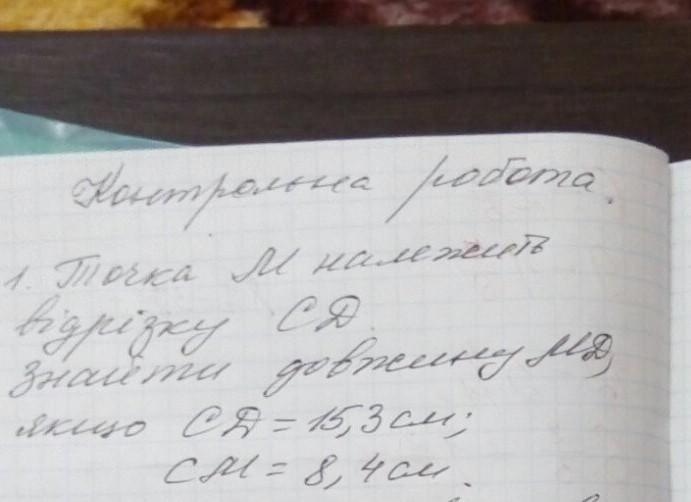 Контрольна робота.
1. Точка М належить
відрізку СД
знайти довжину МД,
якщо СД = 15,3 см;
СМ = 8,4 см.